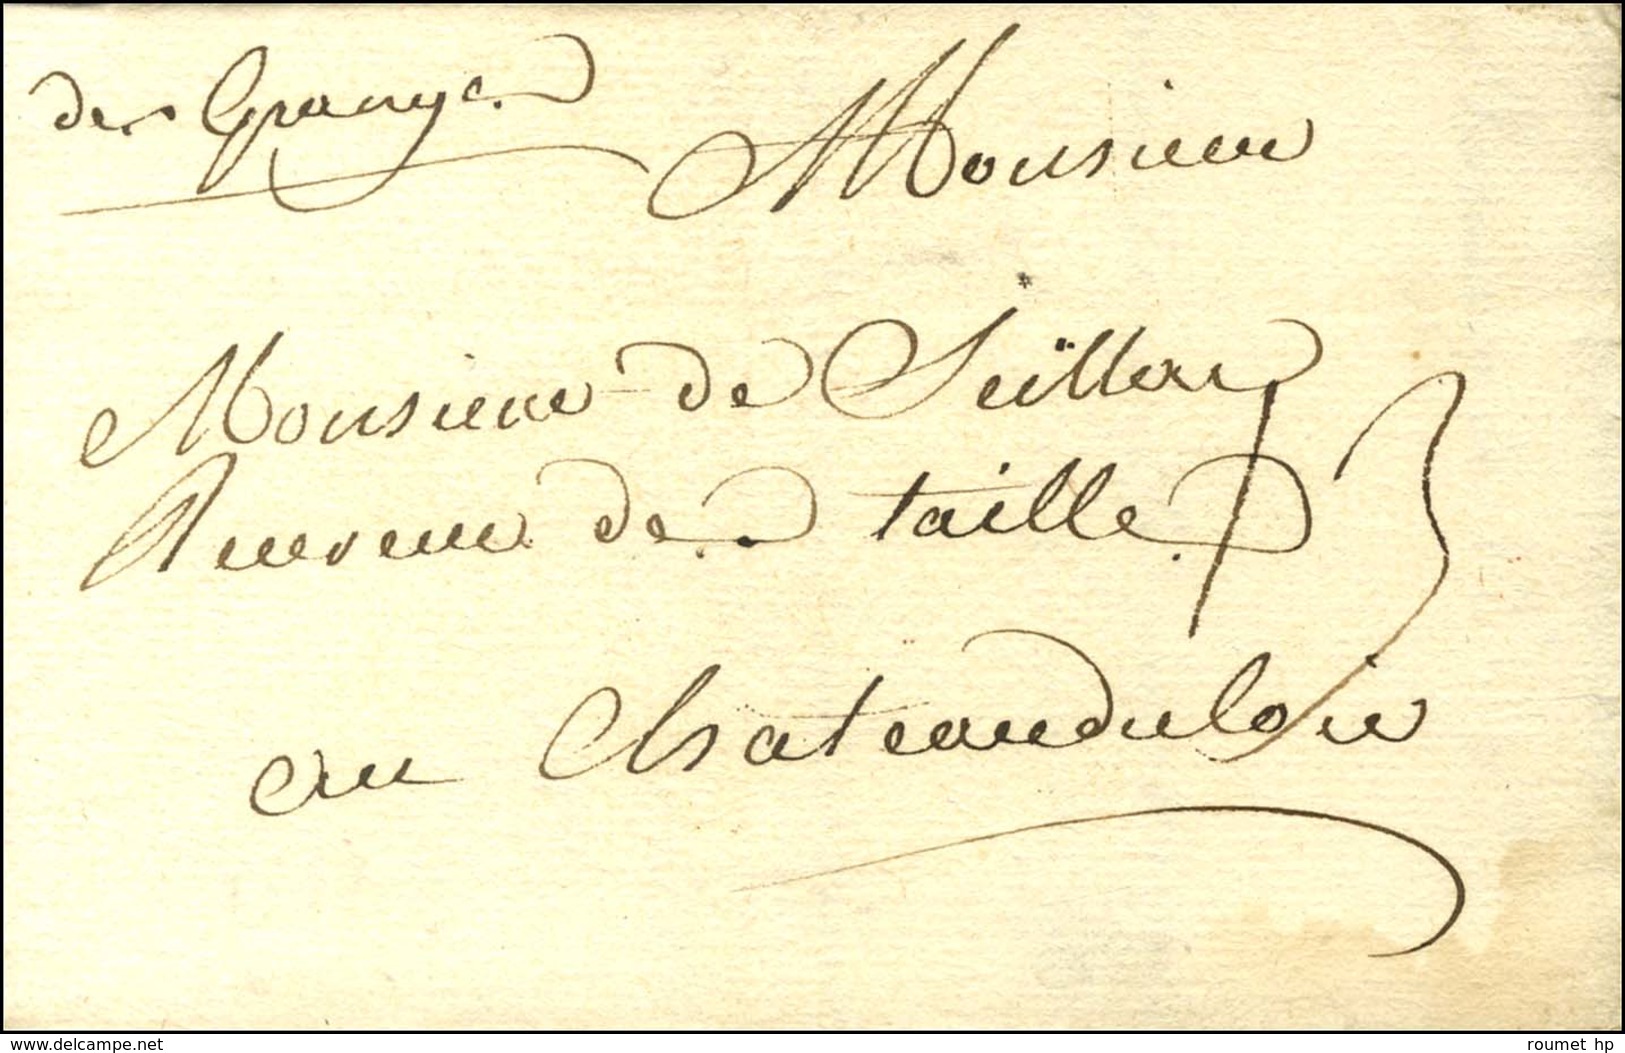 des Granges
Monsieur
Monsieur de Seillac
Receveur de taille
au Chateauduloir
13
www.delcampe.net
roumet hp